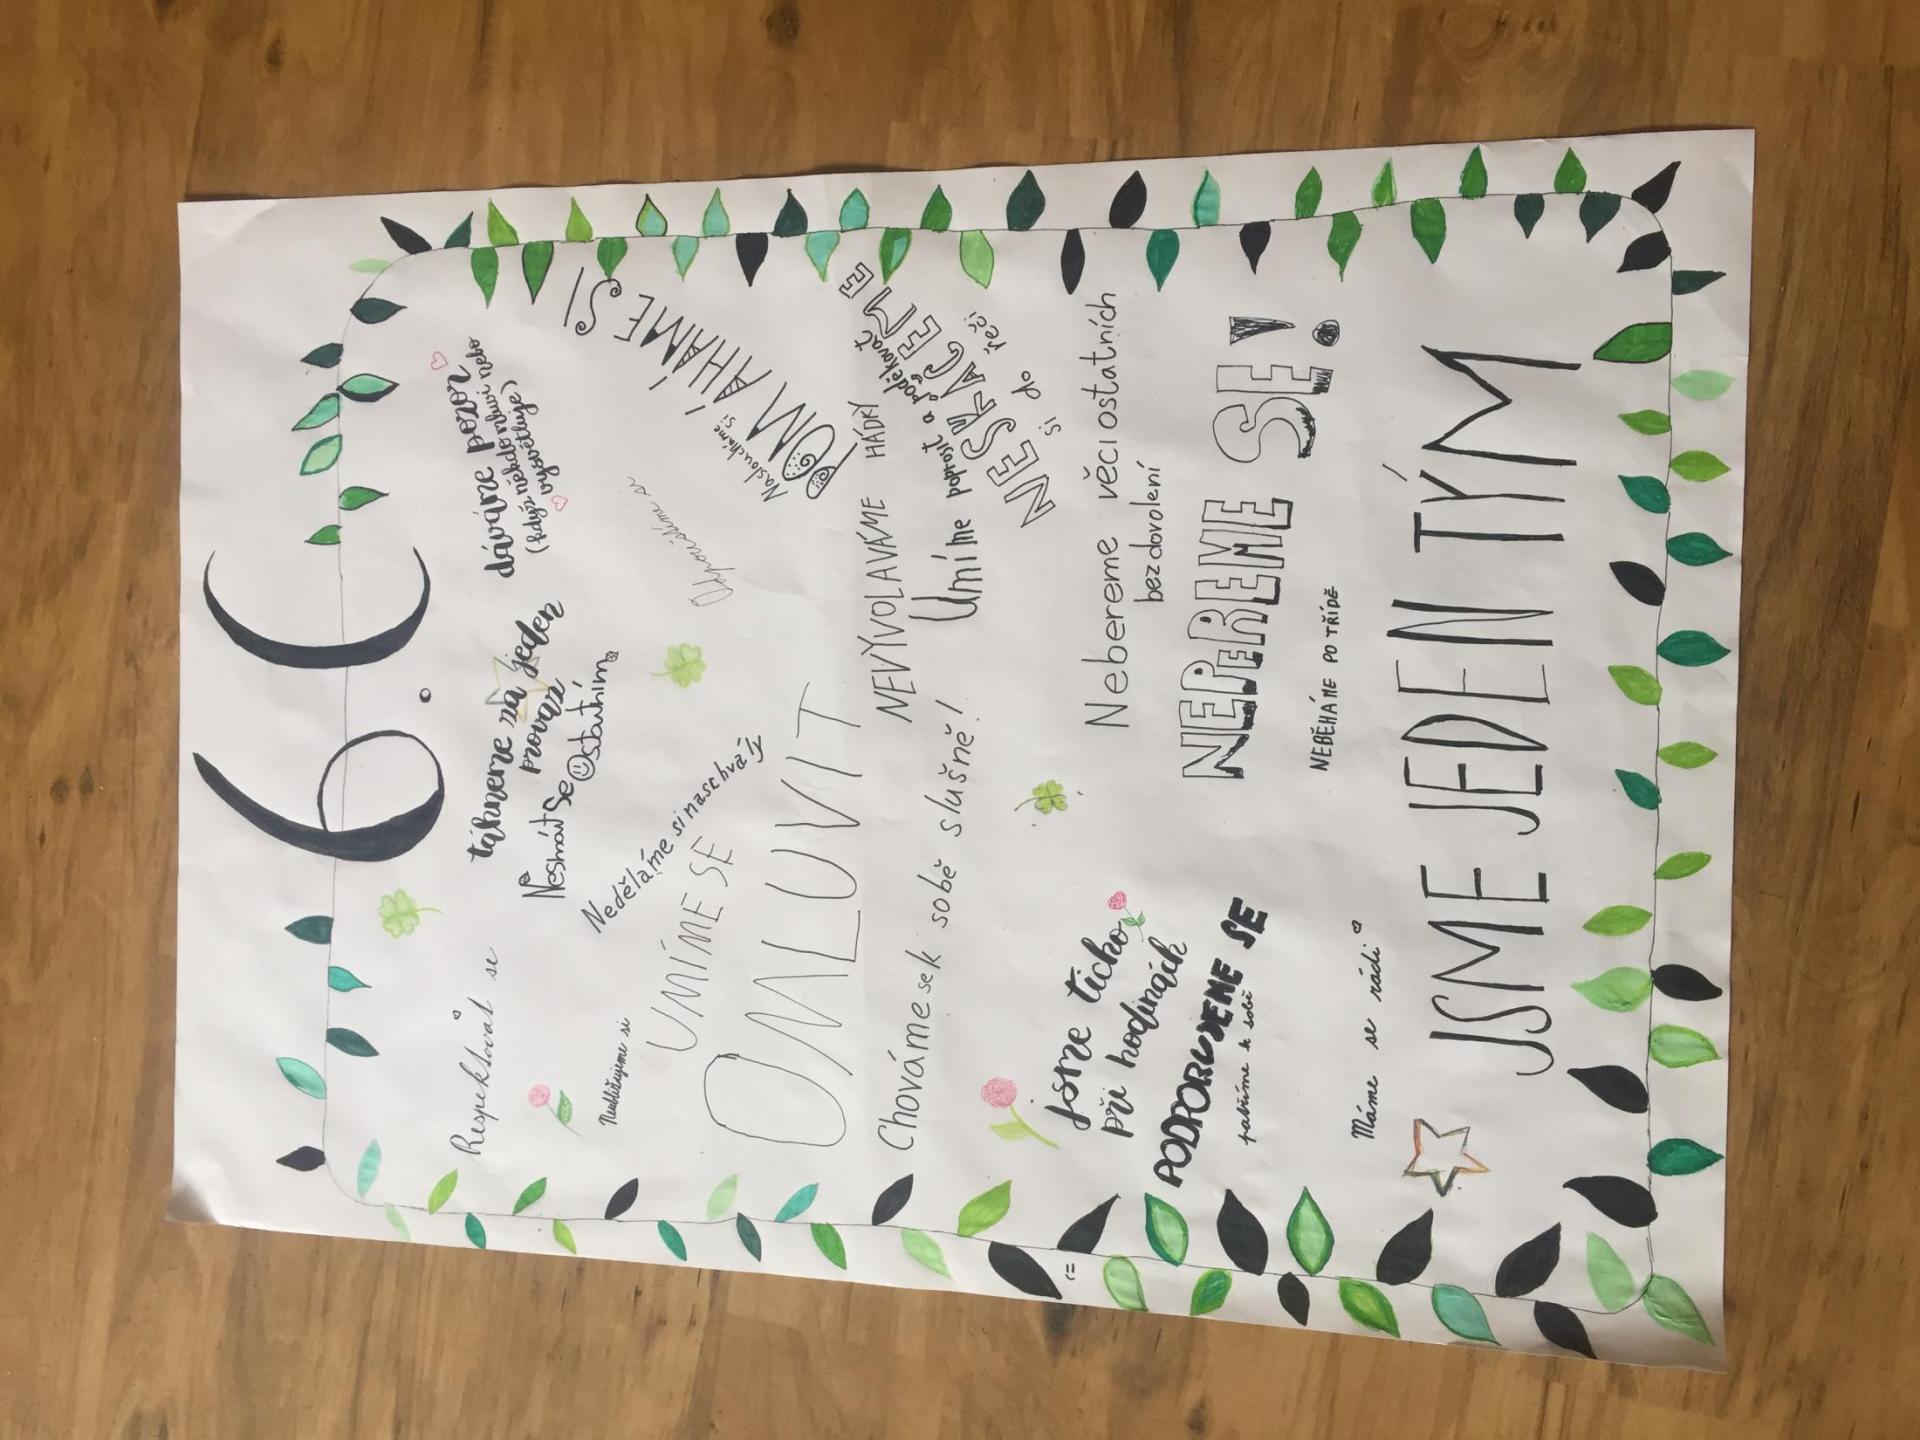 6.C
Respektovat se
táhneme za jeden
provaz
dáváme pozor
(když někdo mluví nebo
vysvětluje)
Nesmát se ostatním
Neubližujeme si
Neděláme si naschvály
Odpouštíme si
UMÍME SE
OMLUVIT
Nasloucháme si
POMAHÁME SI
NEVYVOLAVÁME HÁDKY
Chováme se k sobě slušně!
Umíme poprosit a poděkovat
NESKÁČEME
si do řeči
Jsme ticho
při hodinách
Nebereme věci ostatních
bez dovolení
PODPORUJEME SE
patříme k sobě
NEPEREME SE!
NEBĚHÁME PO TŘÍDĚ
Máme se rádi
JSME JEDEN TÝM